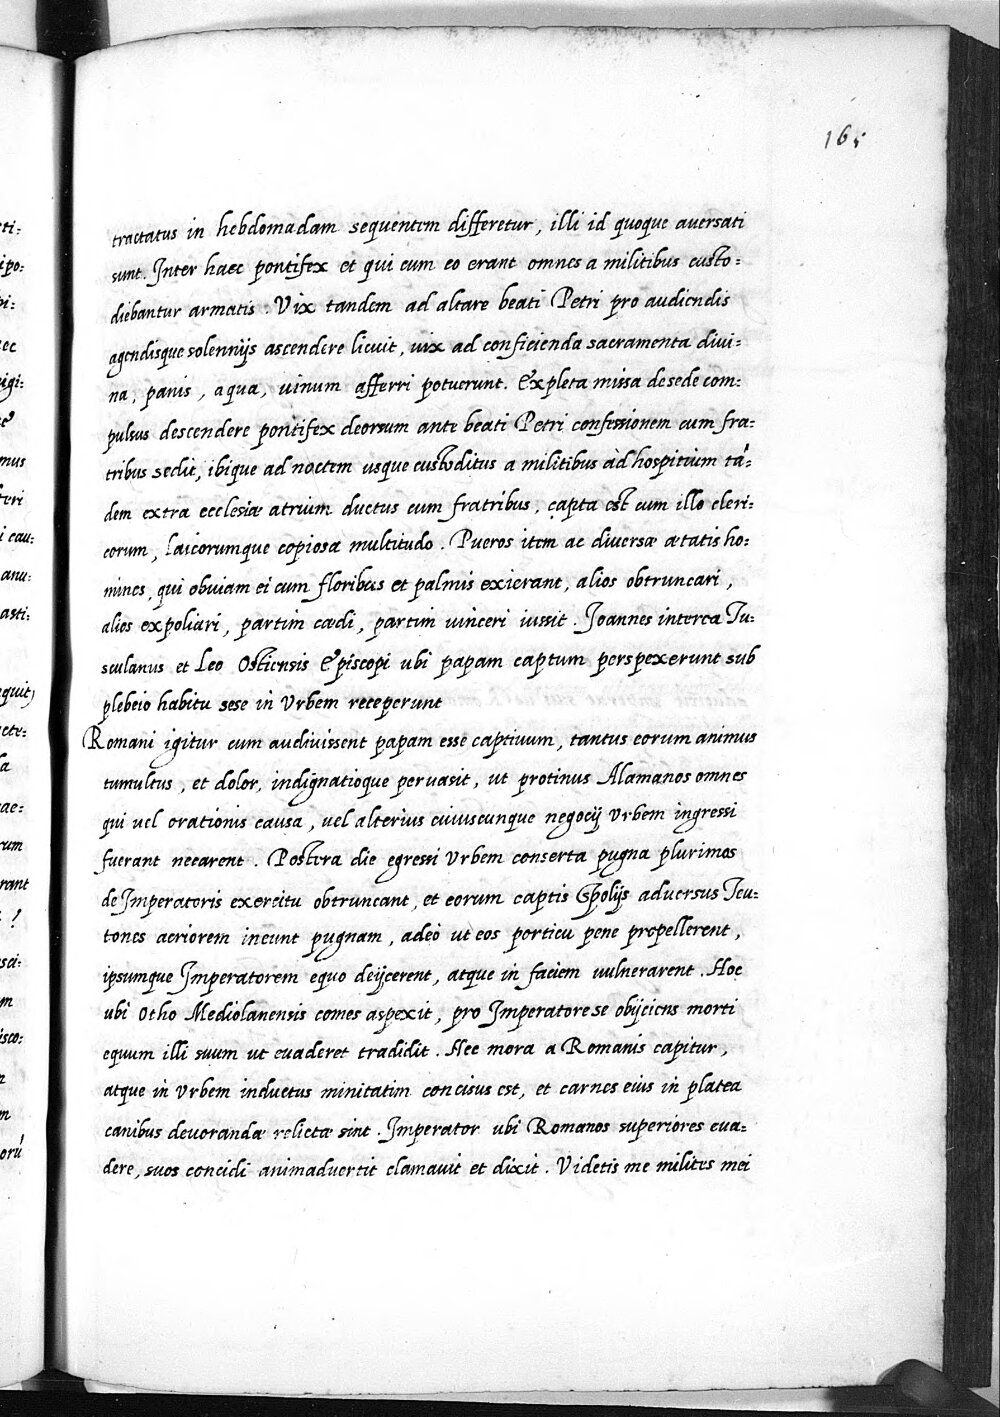 165
tractatus in hebdomadam sequentem differetur, illi id quoque aversati
sunt. Inter haec pontifex et qui cum eo erant omnes a militibus custo=
diebantur armatis. Vix tandem ad altare beati Petri pro audiendis
agendisque solennijs ascendere licuit, vix ad conficienda sacramenta divi=
na, panis, aqua, vinum afferri potuerunt. Expleta missa de sede com=
pulsus descendere pontifex deorsum ante beati Petri confessionem cum fra=
tribus sedit, ibique ad noctem usque custoditus a militibus ad hospitium tā=
dem extra ecclesiæ atrium ductus cum fratribus, capta est cum illo cleri=
corum, laicorumque copiosa multitudo. Pueros item ac diversæ ætatis ho=
mines, qui obviam ei cum floribus et palmis exierant, alios obtruncari,
alios expoliari, partim cædi, partim vinceri iussit. Joannes interea Tu=
sculanus et Leo Ostiensis Episcopi ubi papam captum perspexerunt sub
plebeio habitu sese in Urbem receperunt
Romani igitur cum audivissent papam esse captivum, tantus eorum animus
tumultus, et dolor, indignatioque pervasit, ut protinus Alamanos omnes
qui vel orationis causa, vel alterius cuiuscunque negocij Urbem ingressi
fuerant necarent. Postera die egressi Urbem conserta pugna plurimos
de Imperatoris exercitu obtruncant, et eorum captis Spolijs adversus Teu=
tones acriorem ineunt pugnam, adeò ut eos porticu pene propellerent,
ipsumque Imperatorem equo deijcerent, atque in faciem vulnerarent. Hoc
ubi Otho Mediolanensis comes aspexit, pro Imperatore se obijciens morti
equum illi suum ut evaderet tradidit. Nec mora a Romanis capitur,
atque in Urbem inductus minitatim concisus est, et carnes eius in platea
canibus devorandæ relictæ sint. Imperator ubi Romanos superiores eva=
dere, suos concidi animadvertit clamavit et dixit. Videtis me milites mei